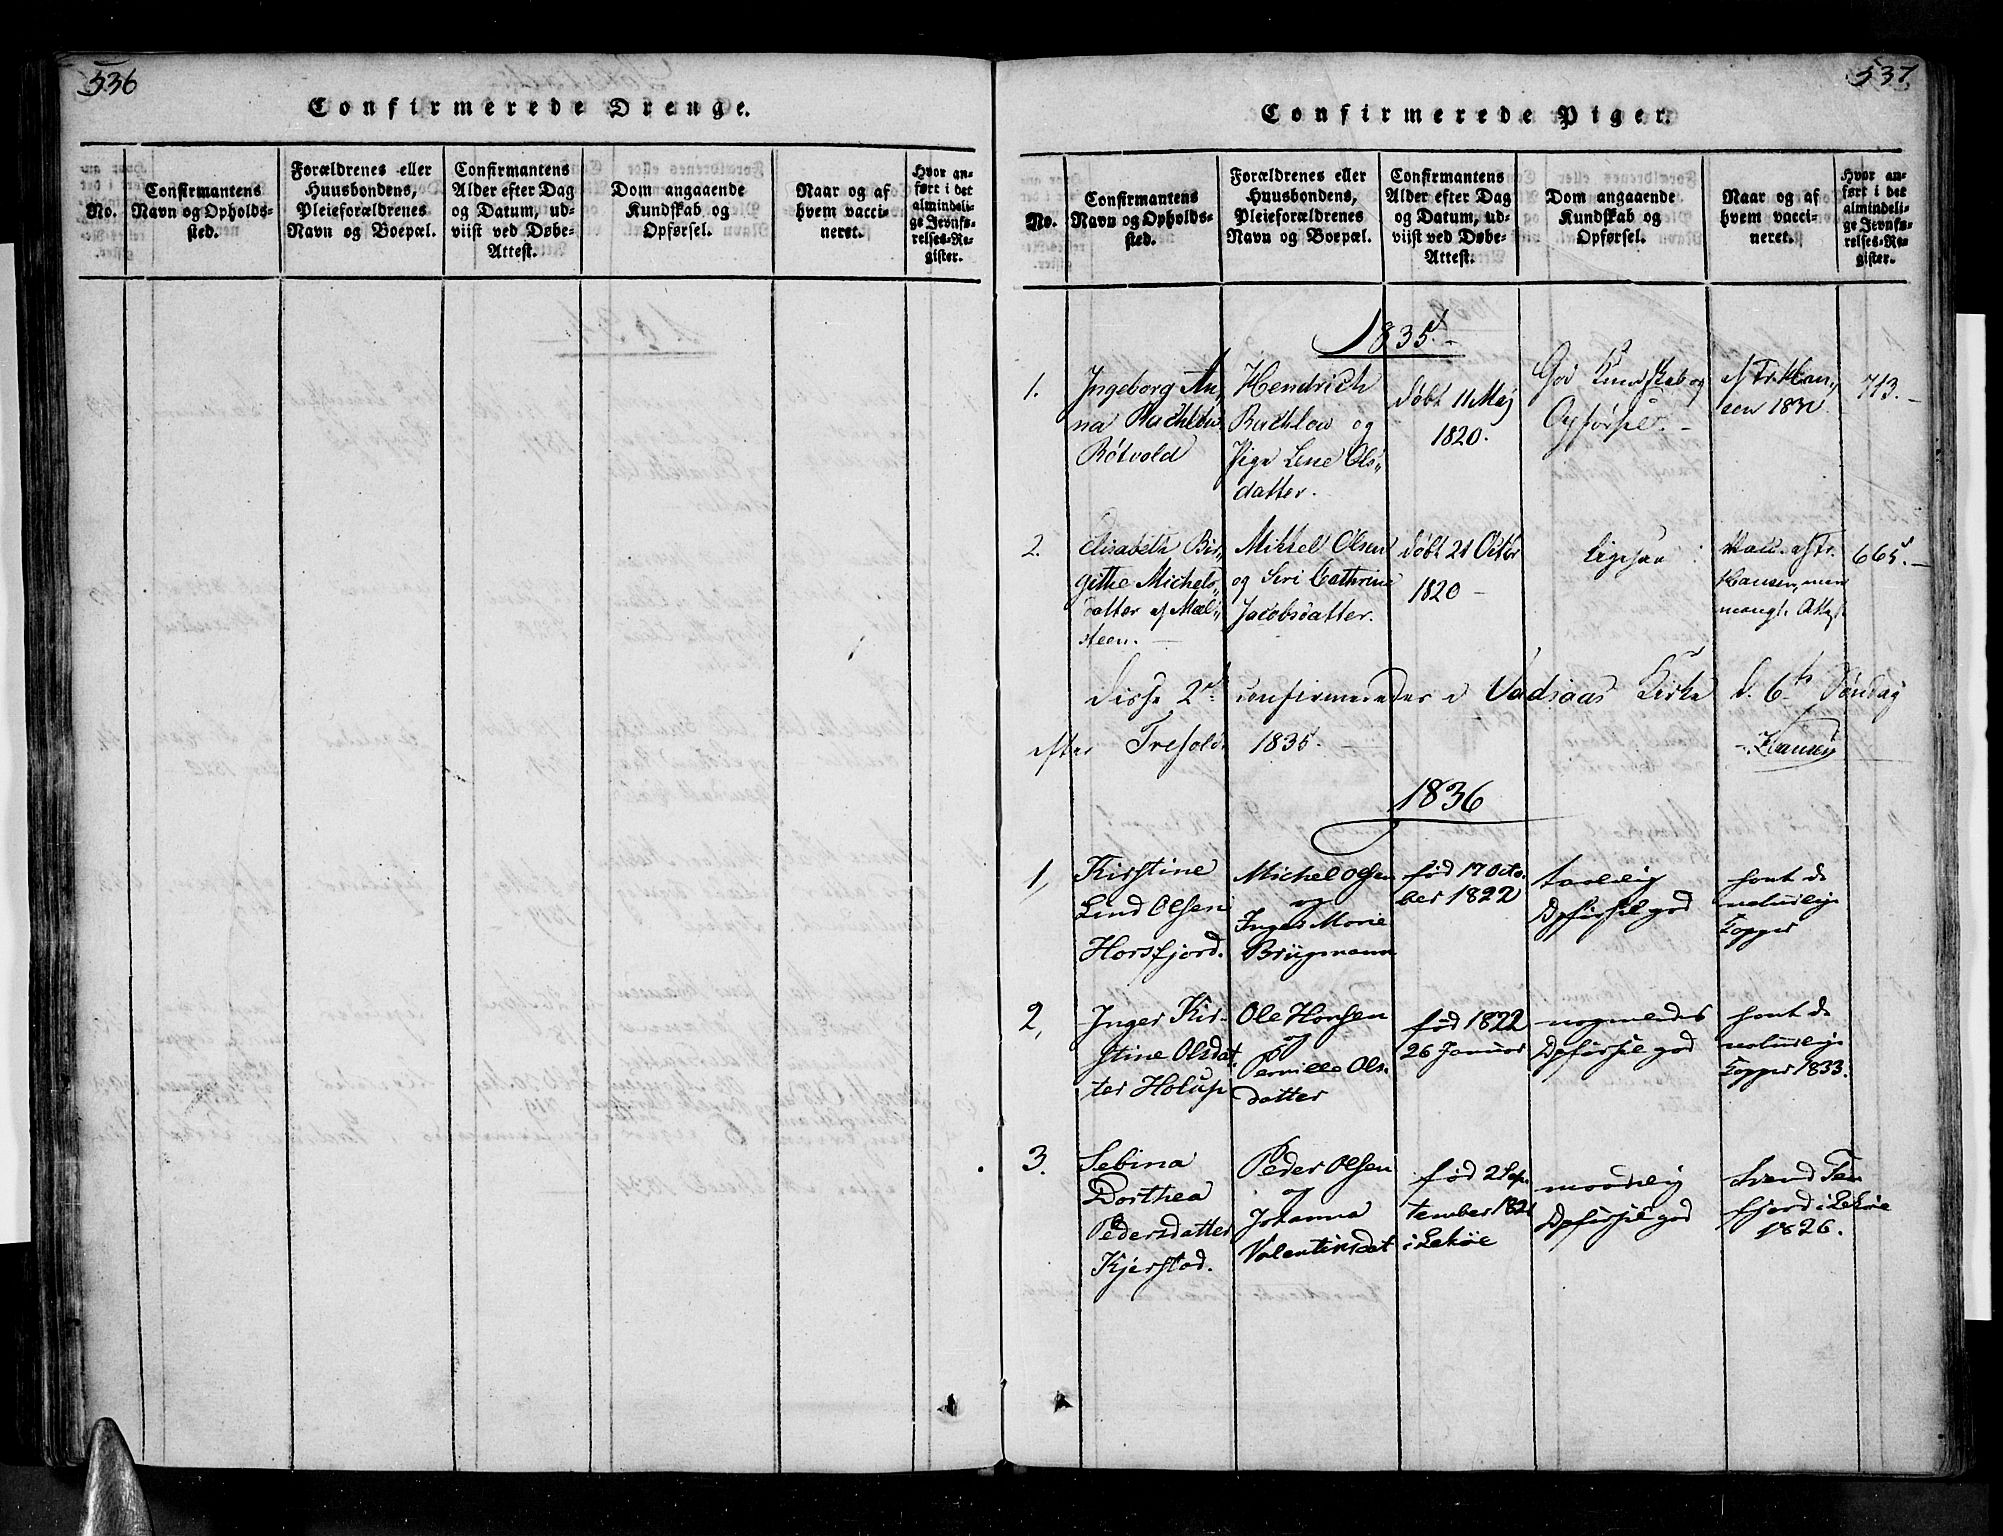 536
Confirmerede Drenge.
No.
Confirmantens
Navn og Opholds-
sted.
Forældrenes eller
Huusbondens,
Pleieforældrenes
Navn og Boepæl.
Confirmantens
Alder efter Dag
og Datum, ud-
viist ved Døbe-
Attest.
Dom angaaende
Kundskab og
Opførsel.
Naar og af
hvem vacci-
neret.
Hvor an-
ført i det
almindeli-
ge Jevnfø-
relses-Re-
gister.
537
Confirmerede Piger.
No.
Confirmantens
Navn og Opholds-
sted.
Forældrenes eller
Huusbondens,
Pleieforældrenes
Navn og Boepæl.
Confirmantens
Alder efter Dag
og Datum, ud-
viist ved Døbe-
Attest.
Dom angaaende
Kundskab og
Opførsel.
Naar og af
hvem vacci-
neret.
Hvor an-
ført i det
almindeli-
ge Jevnfø-
relses-Re-
gister.
1835.
1.
Ingeborg An,
na Buchlou
Røtvold
Hendrich
Buchlou og
Pige Lene Ols,,
datter.
døbt 11 Maj
1820.
God Kundskab og
Opførsel.
af Fr. Han,
sen 183
713.
2.
Elisabeth Bir,
githe Michels,,
datter af Mæl,,
steen.
Mikkel Olsen
og Siri Cathrine
Jacobsdatter.
døbt 21 Octbr
1820
Ligesaa
Vacc. af Fr.
Hansen, men
mangl. Attest
665.
Disse 2 confirmeredes i Vadsøes Kirke d. 6te Søndag
efter Trefold. 1835.
Hansen
1836
1,
Kirstine
Lind Olsen
Horsfjord.
Michel Olsen
og
Inger Marie
Brügmann
fød 17 Octo,
ber 1822
taalelig
Opførsel god
havt de
naturlige
Kopper
2,
Inger Kir-
stine Olsdat,
ter Holup
Ole Hansen
og
Pernille Ols-
datter
fød 1822
26 Januar
nogenledes
Opførsel god
havt de
naturlige
Kopper 1833.
3.
Sebina
Dorthea
Pedersdatter
Kjerstad.
Peder Olsen
og
Johanna
Valentinsdat
fød 2 Sep.
tember 1821
i Lekøe
maadelig
Opførsel god
Svend Ter
fjord i Lekøe
1826.